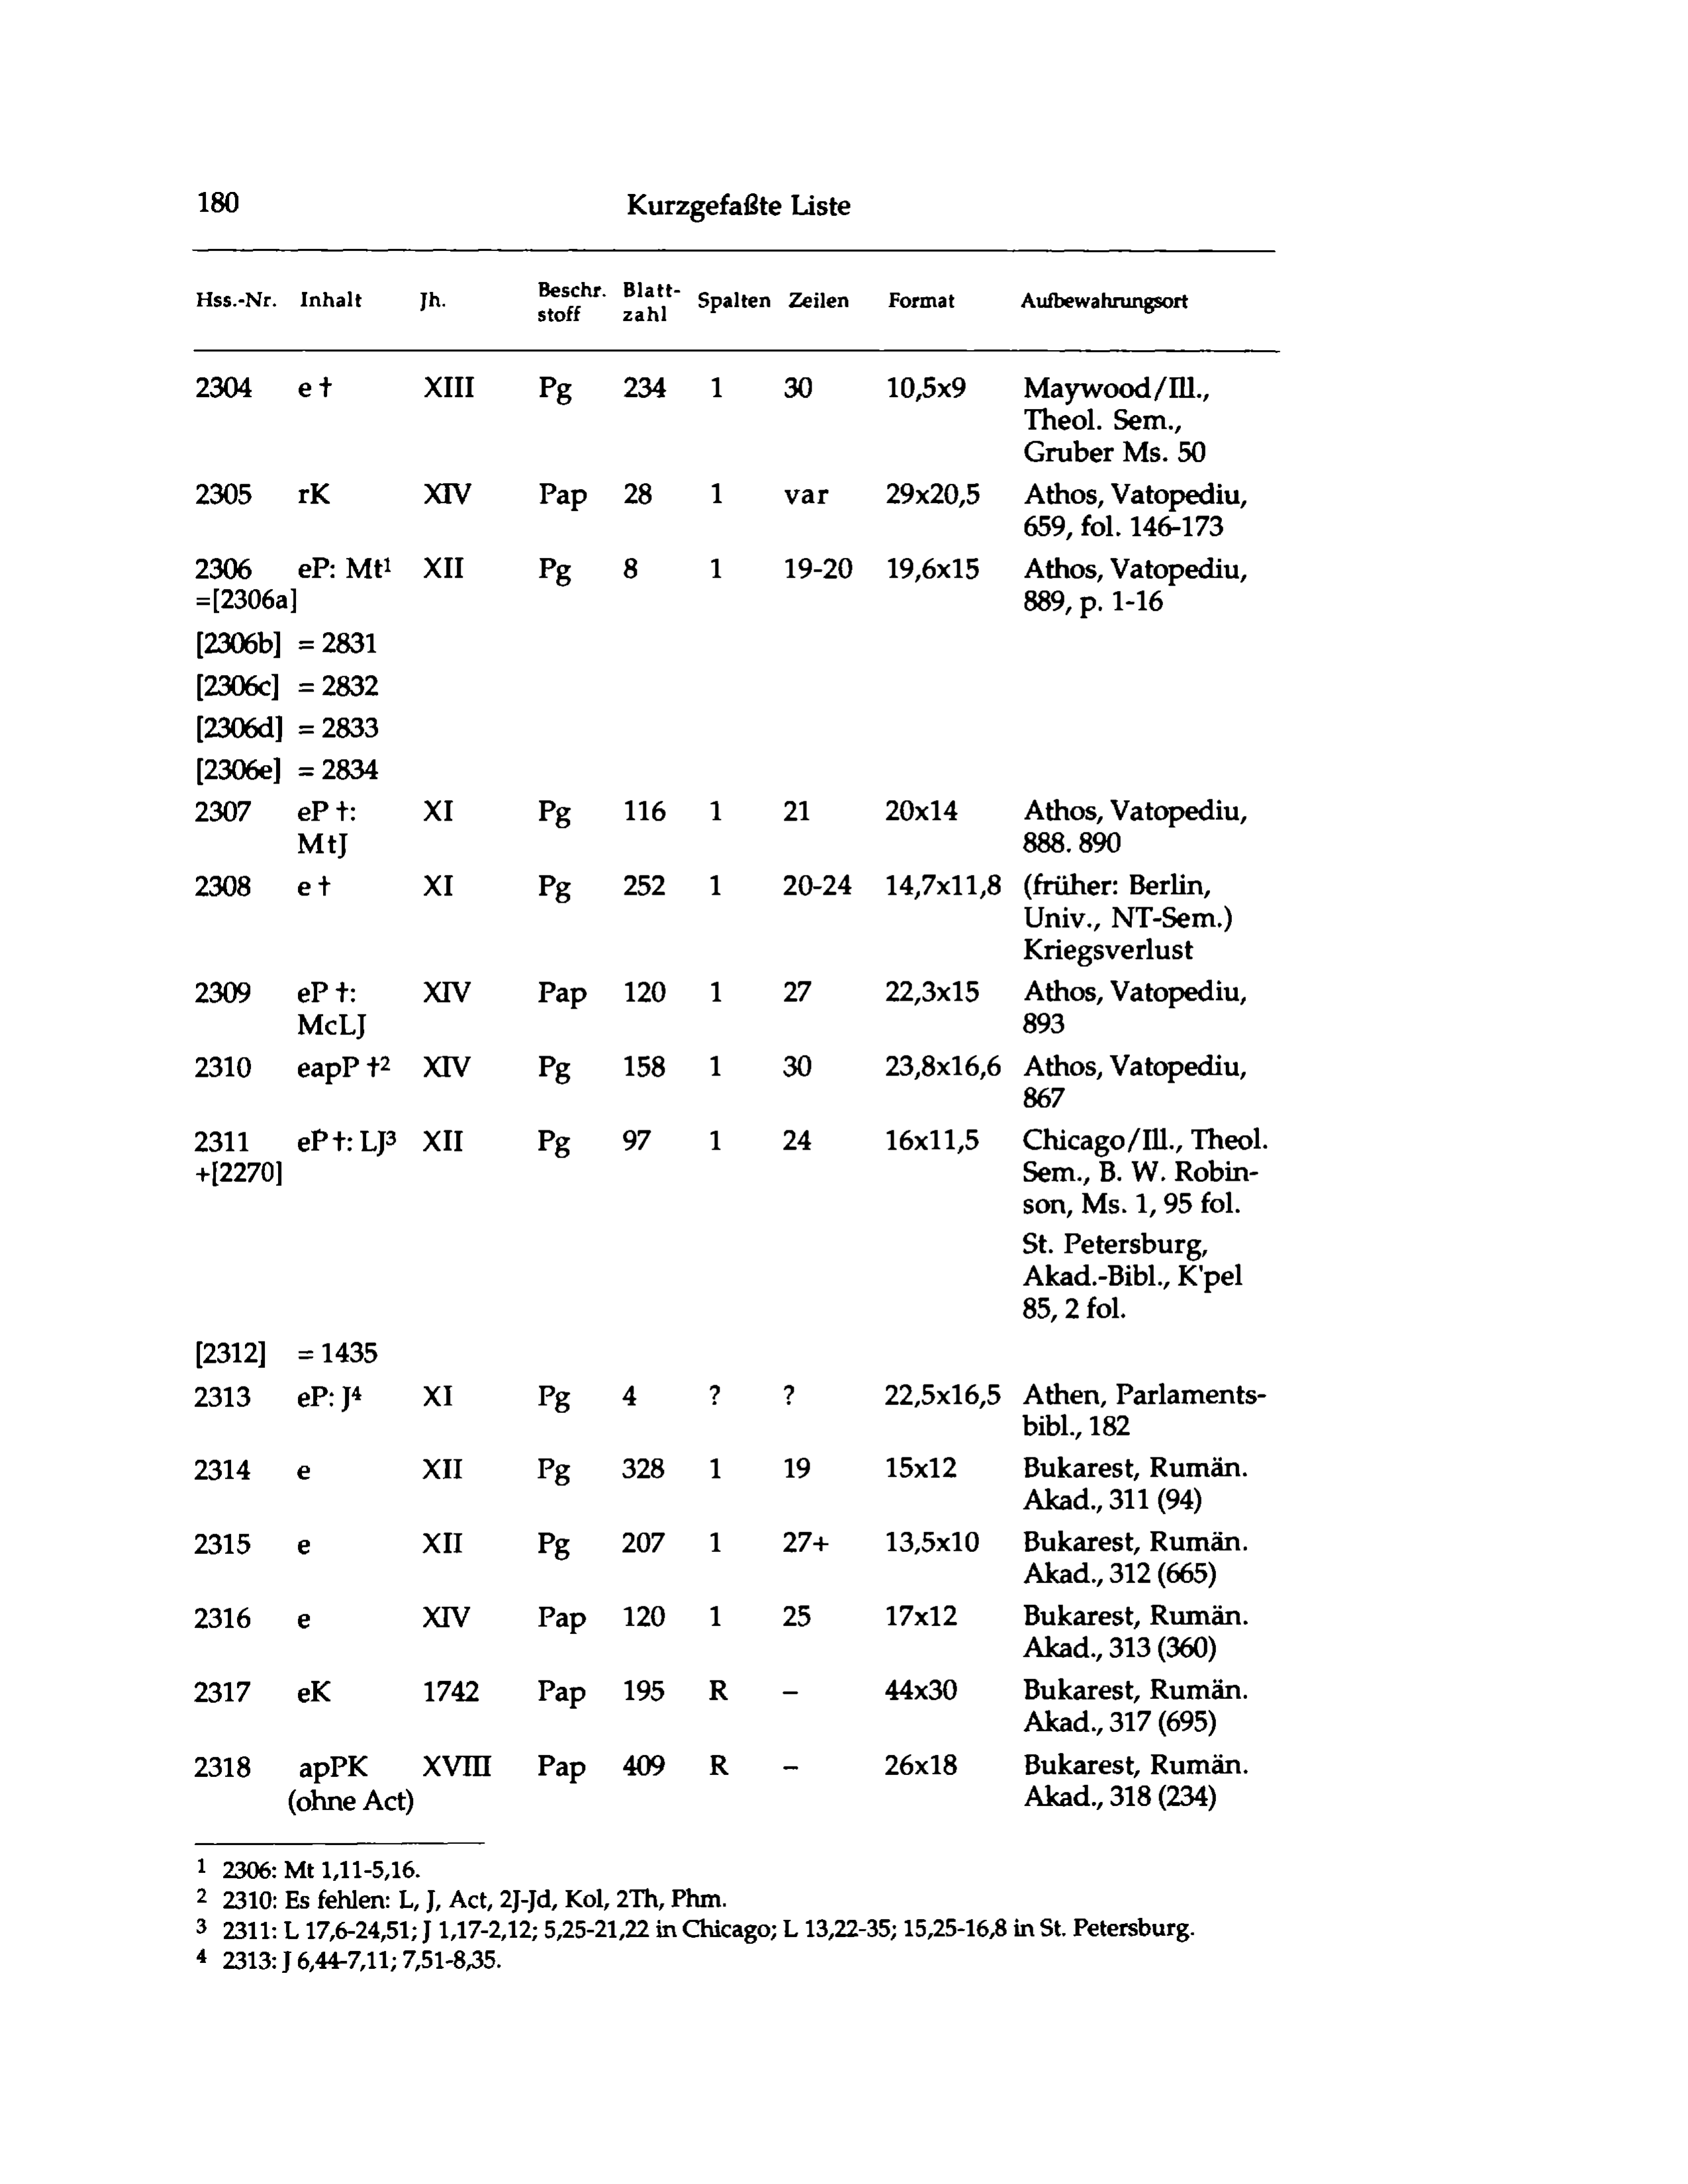 180 Kurzgefaßte Liste
Hss.-Nr. Inhalt Jh. Beschr. stoff Blatt- zahl Spalten Zeilen Format Aufbewahrungsort
2304 e † XIII Pg 234 1 30 10,5x9 Maywood/Ill.,
Theol. Sem.,
Gruber Ms. 50
2305 rK XIV Pap 28 1 var 29x20,5 Athos, Vatopediu,
659, fol. 146-173
2306 eP: Mt¹ XII Pg 8 1 19-20 19,6x15 Athos, Vatopediu,
=[2306a] 889, p. 1-16
[2306b] = 2831
[2306c] = 2832
[2306d] = 2833
[2306e] = 2834
2307 eP †: XI Pg 116 1 21 20x14 Athos, Vatopediu,
MtJ 888. 890
2308 e † XI Pg 252 1 20-24 14,7x11,8 (früher: Berlin,
Univ., NT-Sem.)
Kriegsverlust
2309 eP †: XIV Pap 120 1 27 22,3x15 Athos, Vatopediu,
McLJ 893
2310 eapP †² XIV Pg 158 1 30 23,8x16,6 Athos, Vatopediu,
867
2311 eP †: LJ³ XII Pg 97 1 24 16x11,5 Chicago/Ill., Theol.
+[2270] Sem., B. W. Robin-
son, Ms. 1, 95 fol.
St. Petersburg,
Akad.-Bibl., K'pel
85, 2 fol.
[2312] = 1435
2313 eP: J⁴ XI Pg 4 ? ? 22,5x16,5 Athen, Parlaments-
bibl., 182
2314 e XII Pg 328 1 19 15x12 Bukarest, Rumän.
Akad., 311 (94)
2315 e XII Pg 207 1 27+ 13,5x10 Bukarest, Rumän.
Akad., 312 (665)
2316 e XIV Pap 120 1 25 17x12 Bukarest, Rumän.
Akad., 313 (360)
2317 eK 1742 Pap 195 R – 44x30 Bukarest, Rumän.
Akad., 317 (695)
2318 apPK XVIII Pap 409 R – 26x18 Bukarest, Rumän.
(ohne Act) Akad., 318 (234)
¹ 2306: Mt 1,11-5,16.
² 2310: Es fehlen: L, J, Act, 2J-Jd, Kol, 2Th, Phm.
³ 2311: L 17,6-24,51; J 1,17-2,12; 5,25-21,22 in Chicago; L 13,22-35; 15,25-16,8 in St. Petersburg.
⁴ 2313: J 6,44-7,11; 7,51-8,35.